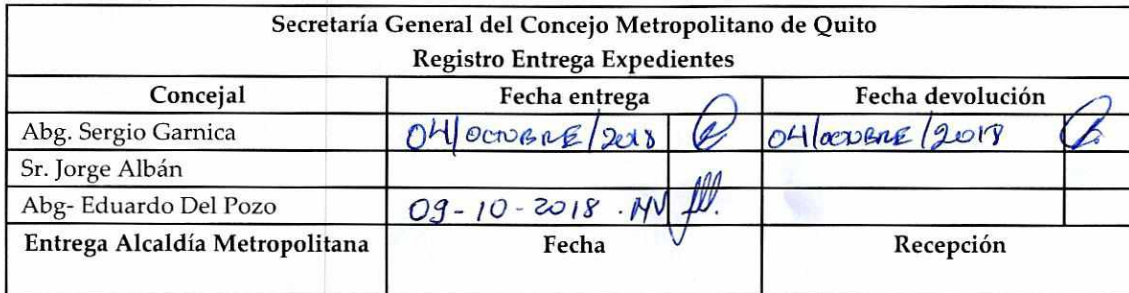 Secretaría General del Concejo Metropolitano de Quito
Registro Entrega Expedientes
Concejal Fecha entrega Fecha devolución
Abg. Sergio Garnica 04/OCTUBRE/2018 04/OCTUBRE/2018
Sr. Jorge Albán
Abg- Eduardo Del Pozo 09-10-2018 .MV
Entrega Alcaldía Metropolitana Fecha Recepción